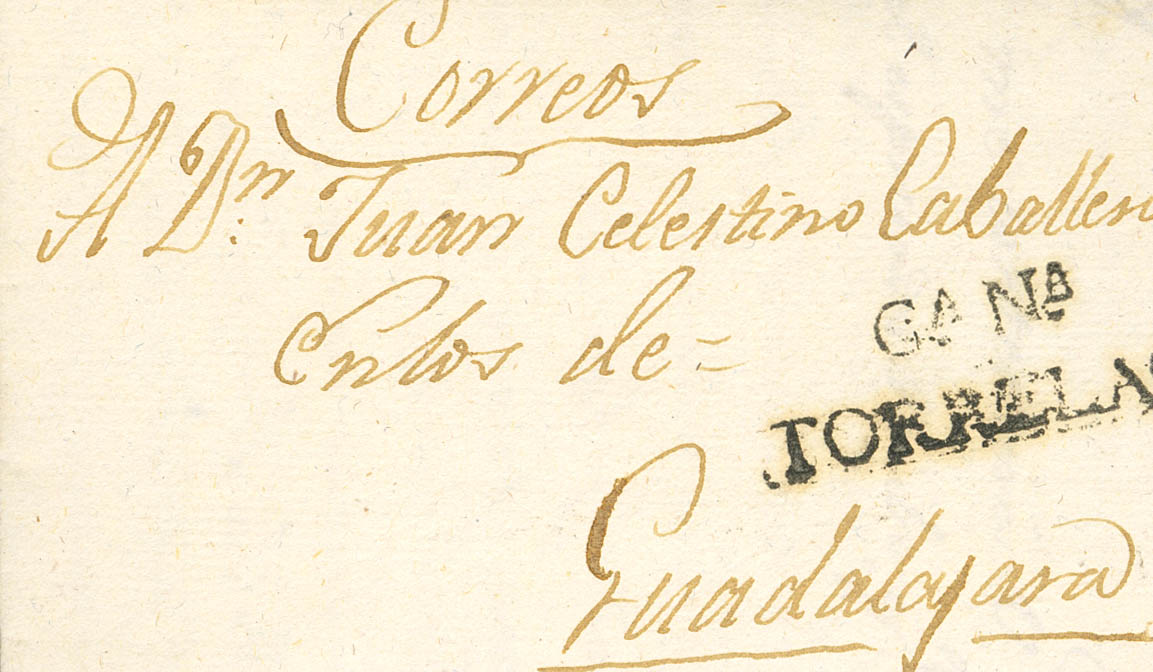 Correos
A Dn. Juan Celestino Caballero
de=
CANa
TORRELA
Guadalajara